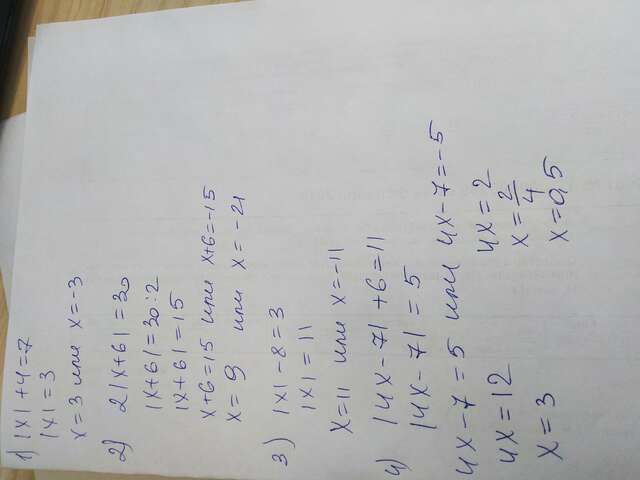 1) |x|+4=7
|x|=3
x=3 или x=-3
2) 2|x+6|=30
|x+6|=30:2
|x+6|=15
x+6=15 или x+6=-15
x=9 или x=-21
3) |x|-8=3
|x|=11
x=11 или x=-11
4) |4x-7|+6=11
|4x-7|=5
4x-7=5 или 4x-7=-5
4x=12 4x=2
x=3 x=2/4
x=0,5